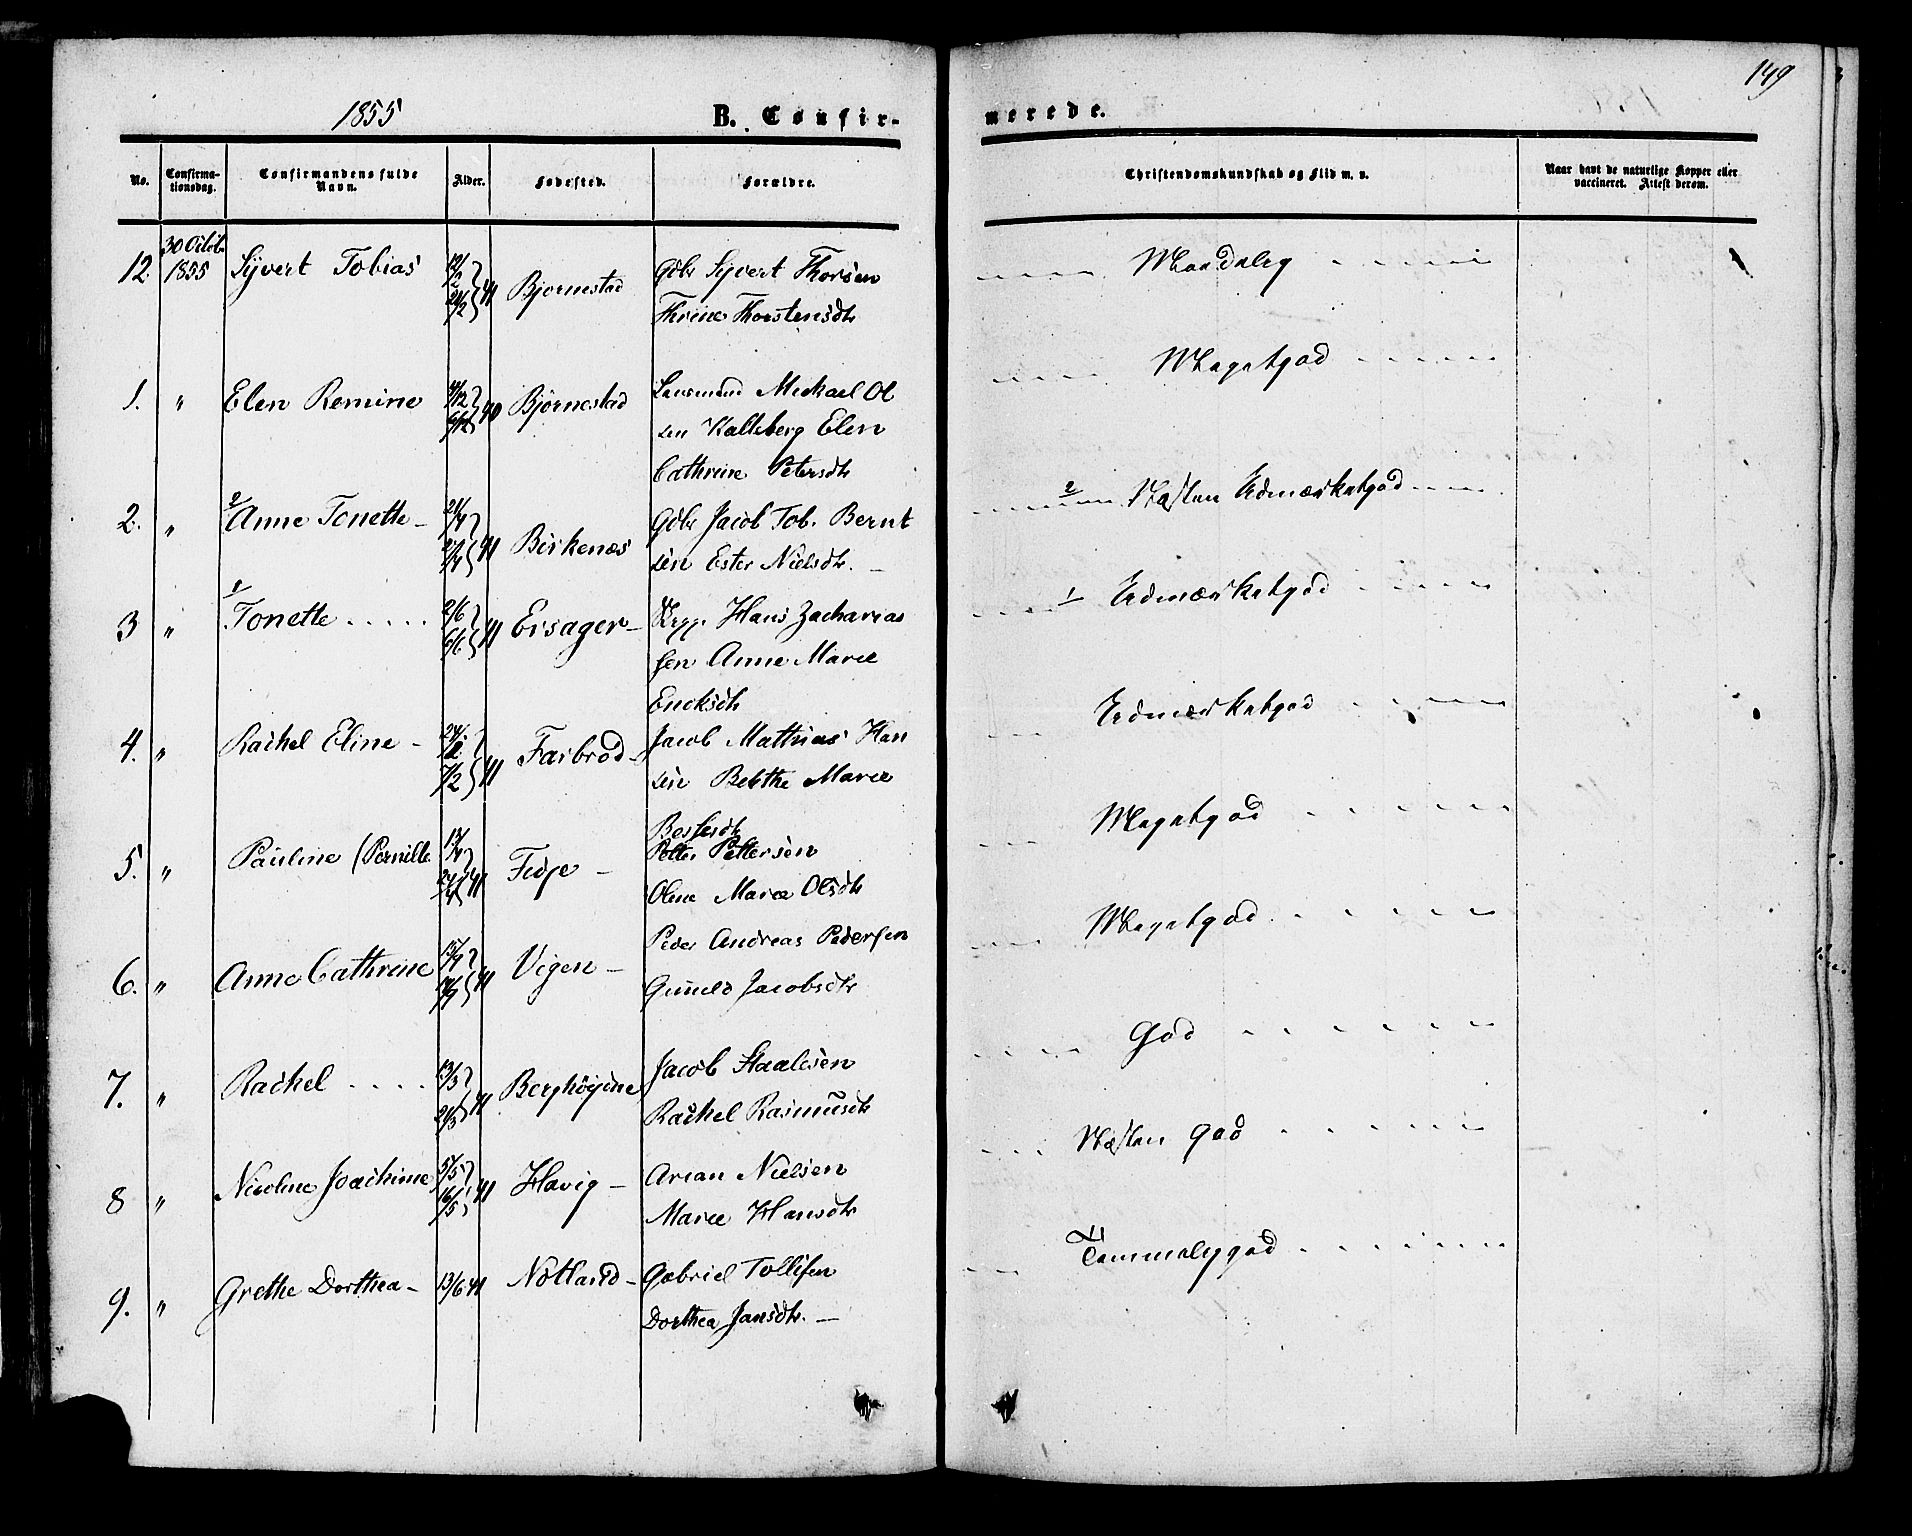 149
1855
B. Confir-
merede.
No.
Confirma-
tionsdag.
Confirmandens fulde
Navn.
Alder.
Fødested.
Forældre.
Christendomskundskab og Flid m. v.
Naar havt de naturlige Kopper eller
vaccineret. Attest derom.
12. 30 Octob. 1855 Syvert Tobias 41 Bjørnestad Gdbr Syvert Thorsen
Thrine Thorstensdtr
Maadelig
1. " Elen Remine 40 Bjørnestad Lensmand Mickael Ol
sen Kalleberg Elen
Cathrine Petersdtr
Megetgod
2. " 2/ Anne Tonette 41 Birkenæs Gdbr Jacob Tob. Bernt
sen Ester Nielsdtr.
2 Næsten Udmærketgod
3 " 1/ Tonette 2/6 6/6 41 Eisager Hans Zacharias
sen Anne Marie
Ericksdtr
1 Udmærketgod
4. " Rachel Eline 7/2 41 Farbrod Jacob Mathias Han
sen Berthe Marie
Udmærketgod
5. " Pauline (Pernille 41 Fedje Petter Pettersen
Olene Marie Olsdtr
Megetgod
6. " Anne Cathrine 41 Vigen Peder Andreas Pedersen
Gunild Jacobsdtr
Megetgod
7. " Rachel 13/3 21/3 41 Berghøyene Jacob Staalesen
Rachel Rasmusdtr
God
8 " Nicoline Joachime 5/5 16/5 41 Havig Arian Nielsen
Marie Hansdtr
Næsten God
9. " Grethe Dorthea 13/6 41 Notland Gabriel Tollifsen
Dorthea Jansdtr.
Temmeliggod